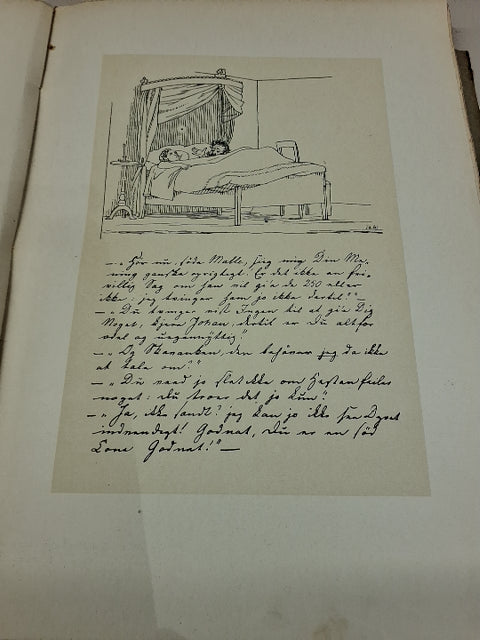 — „Hör nu, söde Malle, siig mig Din Me-
ning ganske oprigtigt: Er det ikke en fri-
villig Sag om han vil gi'e de 250 eller
ikke; jeg tvinger ham jo ikke dertil?" —
— „Du tvinger vist Ingen til at gi'e Dig
Noget, kjere Johan, dertil er Du altfor
ædel og uegennyttig!"
— „Og Skavanken, den behöver jeg da ikke
at tale om?"
— „Du veed jo slet ikke om Hesten feiler
noget; Du troer det jo kun!"
— „Ja, ikke sandt? jeg kan jo ikke see Dyret
indvendigt! Godnat, Du er en söd
Kone Godnat!" —